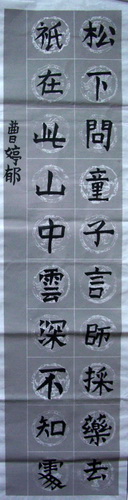 松下問童子言師採藥去
祇在此山中雲深不知處
曹婷郁